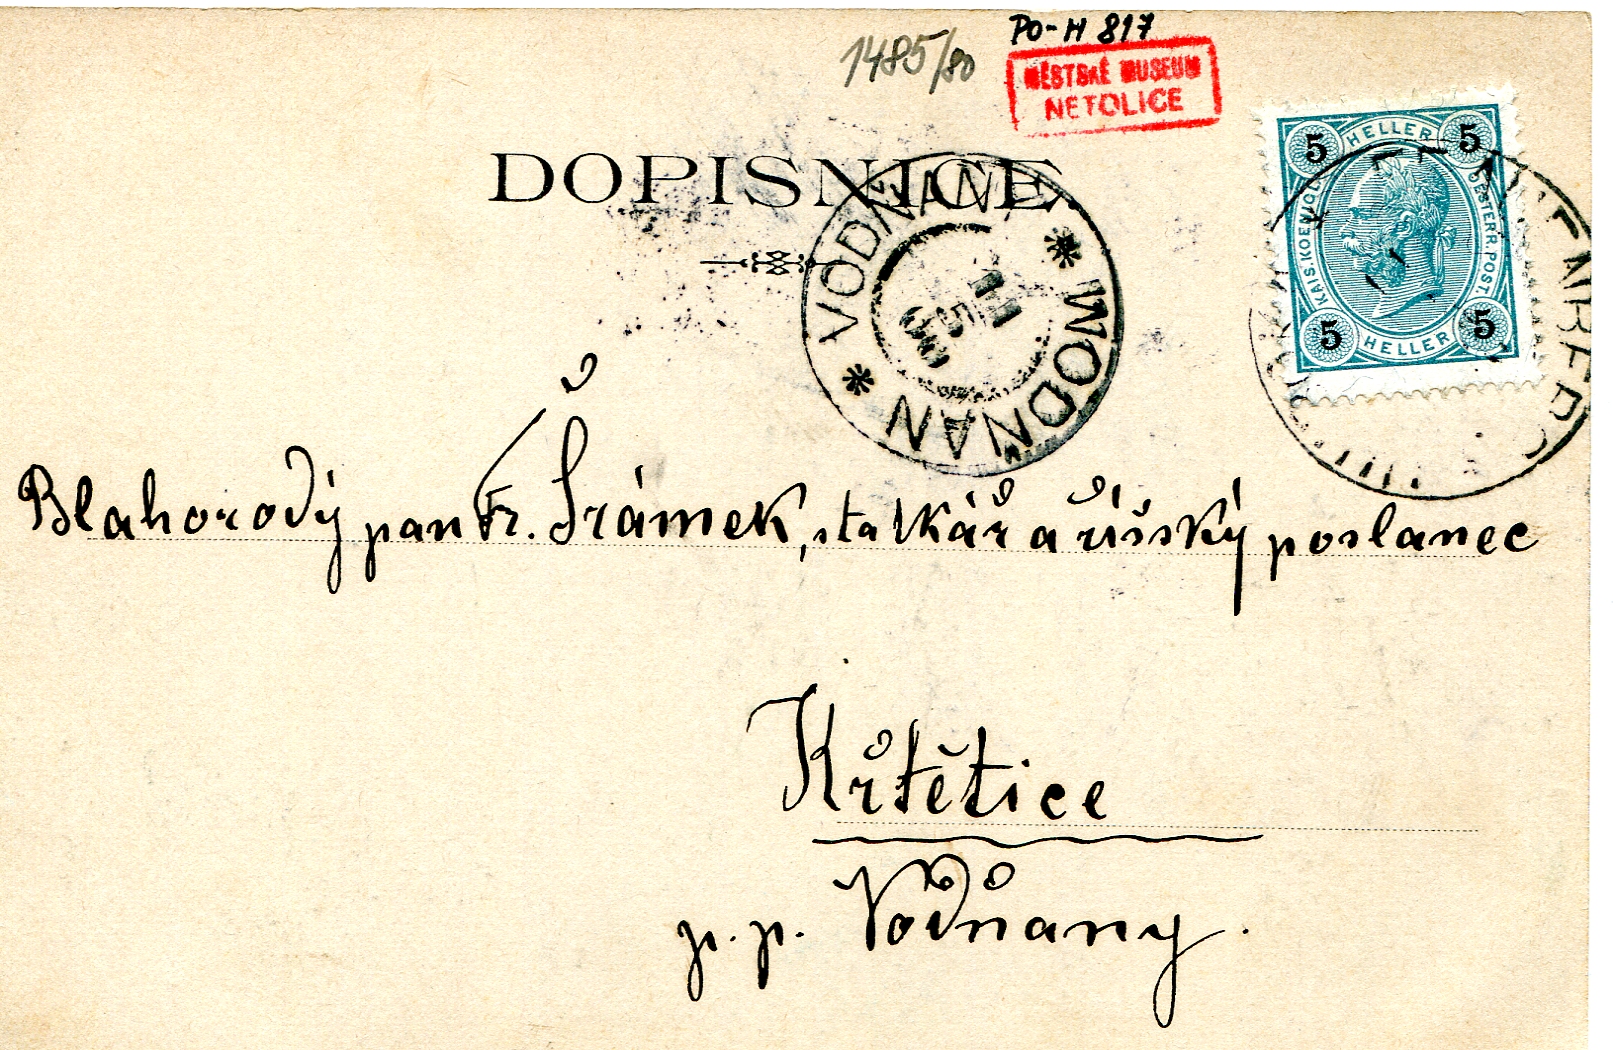 PO-H 817
1485/80
MĚSTSKÉ MUSEUM
NETOLICE
DOPISNICE.
5 HELLER 5
KAIS. KOENIGL. OESTERR. POST.
5 HELLER 5
VODŇANY * WODŇAN *
11
5
00
Blahorodý pan Fr. Šrámek, statkář a říšský poslanec
Křtětice
p. p. Vodňany.